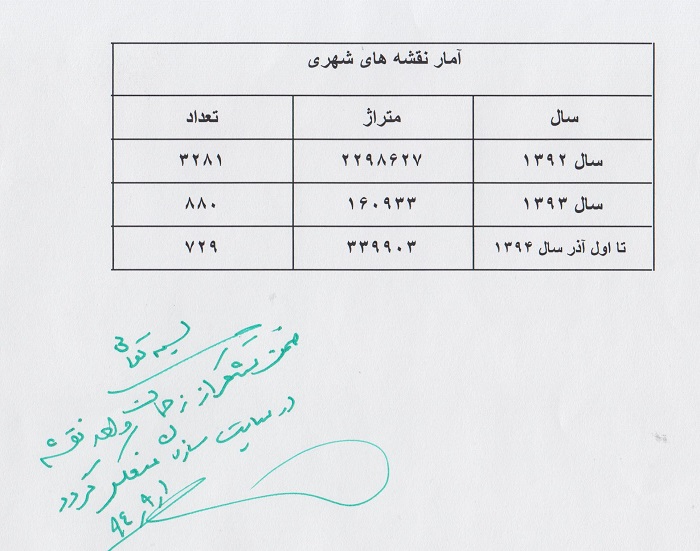 آمار نقشه های شهری
سال متراژ تعداد
سال ۱۳۹۲ ۲۲۹۸۶۲۷ ۳۲۸۱
سال ۱۳۹۳ ۱۶۰۹۳۳ ۸۸۰
تا اول آذر سال ۱۳۹۴ ۳۳۹۹۰۳ ۷۲۹
ضمن تشکر از زحمات واحد نقشه
در سایت سازمان منعکس گردد